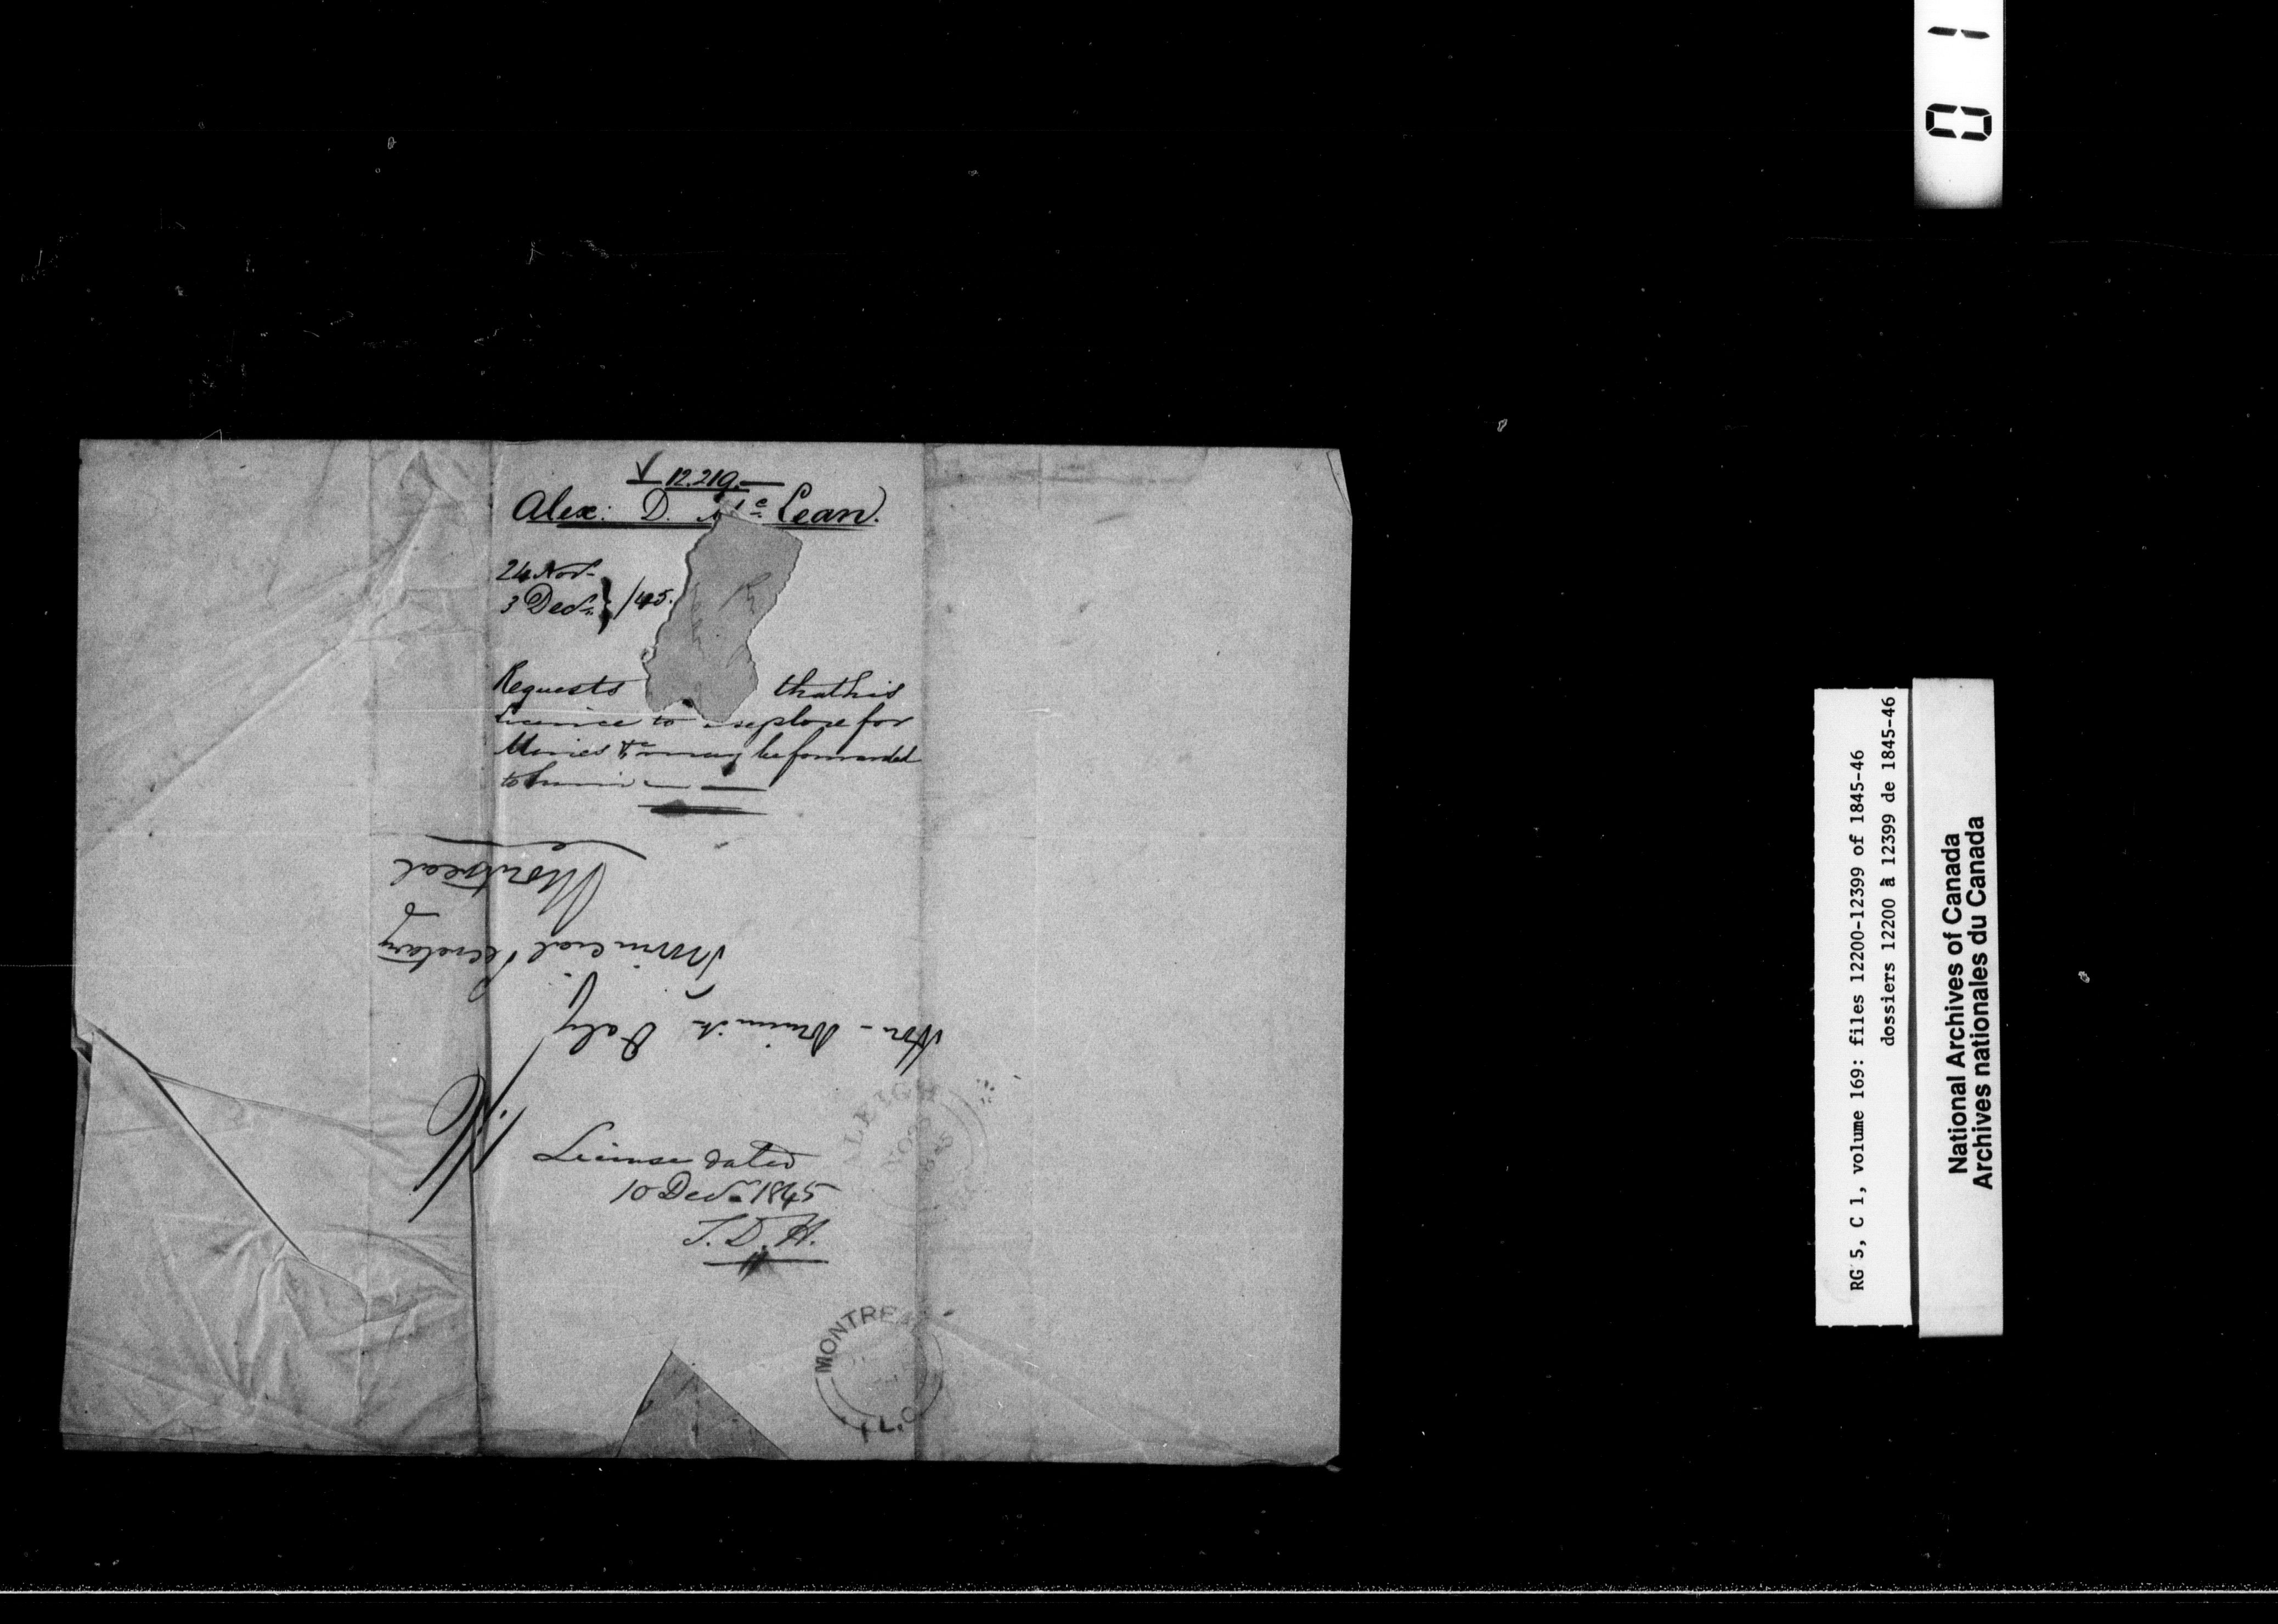 12.219.
Alex: D. McLean.
24 Nov.
3 Decr. } /45.
Requests that his
Licence to explore for
Mines &c may be forwarded
to him
Hon. Dominick Daly
Provincial Secretary
Montreal
License dated
10 Decr. 1845
T.D.H.
MONTREAL
L.C.
RALEIGH
01
RG 5, C 1, volume 169: files 12200-12399 of 1845-46
dossiers 12200 à 12399 de 1845-46
National Archives of Canada
Archives nationales du Canada